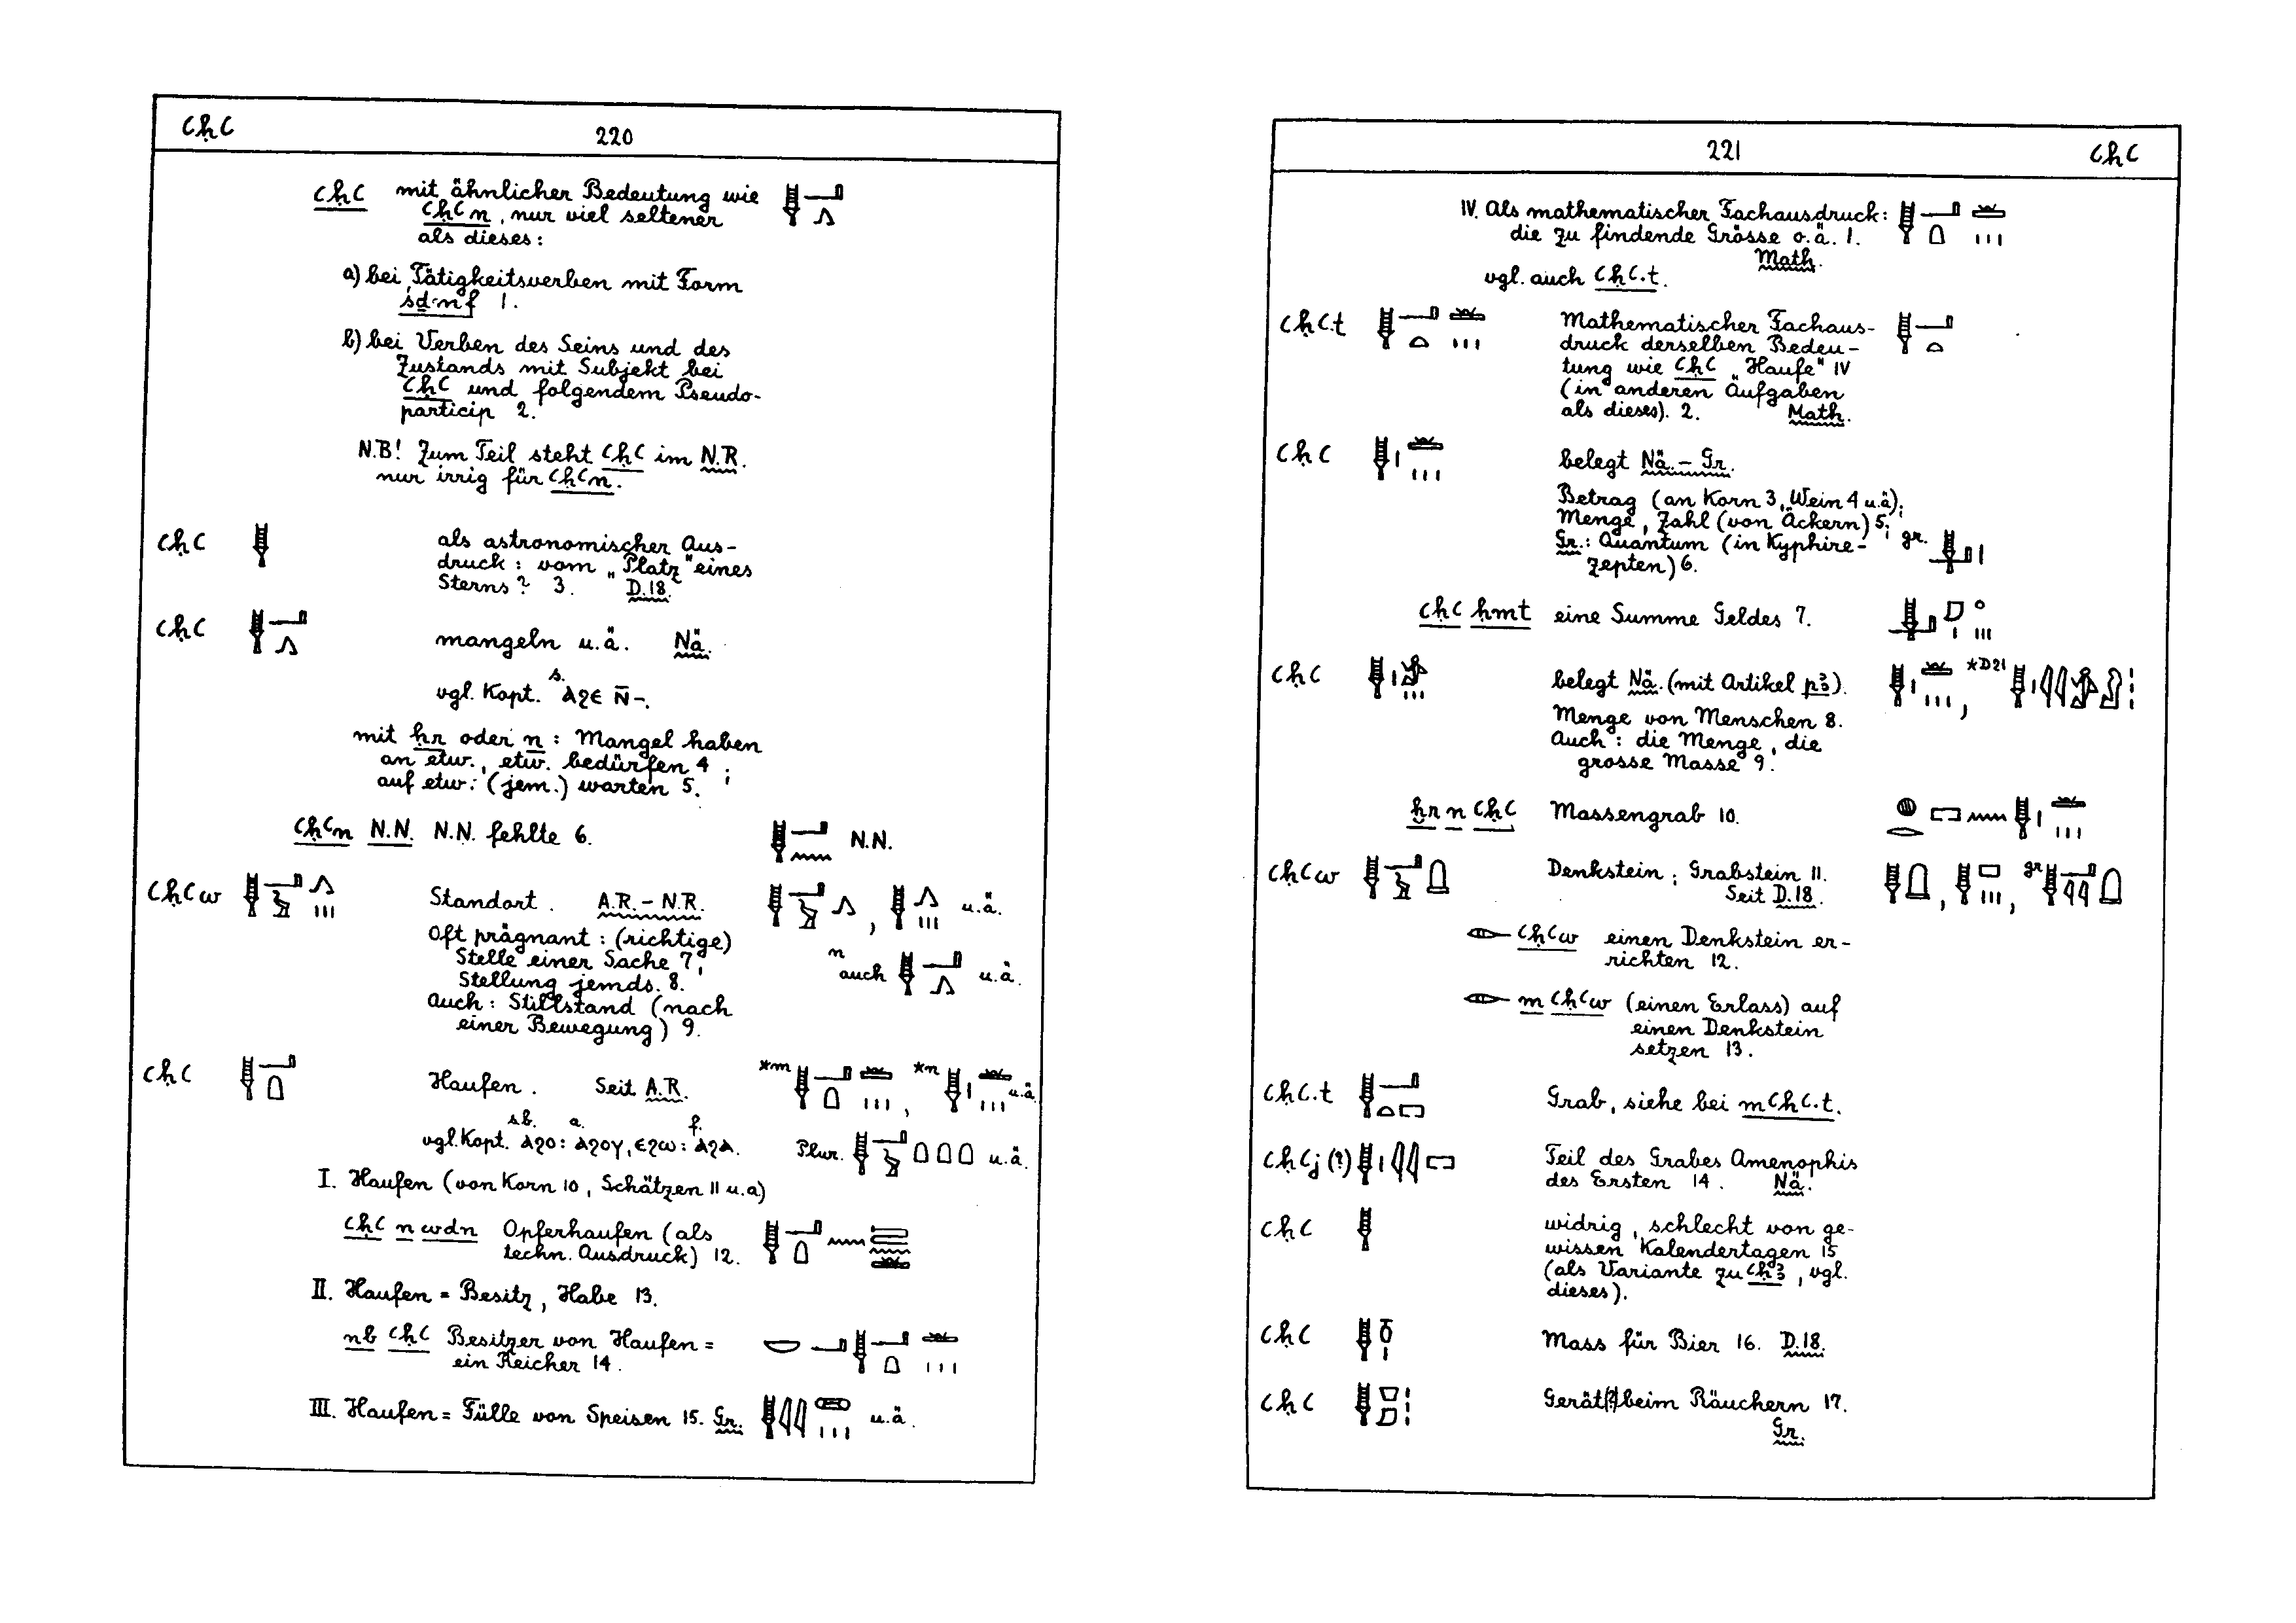 ꜥḥꜥ 220
ꜥḥꜥ mit ähnlicher Bedeutung wie
ꜥḥꜥn, nur viel seltener
als dieses:
a) bei Tätigkeitsverben mit Form
sḏmnf 1.
b) bei Verben des Seins und des
Zustands mit Subjekt bei
ꜥḥꜥ und folgendem Pseudo-
particip 2.
N.B! Zum Teil steht ꜥḥꜥ im N.R.
nur irrig für ꜥḥꜥn.
ꜥḥꜥ als astronomischer Aus-
druck: vom „Platz" eines
Sterns? 3. D.18.
ꜥḥꜥ mangeln u.ä. Nä.
s.
vgl. Kopt. ⲁϩⲉ ⲛ̄-.
mit ḥr oder n: Mangel haben
an etw., etw. bedürfen 4;
auf etw. (jem.) warten 5.
ꜥḥꜥn N.N. N.N. fehlte 6. N.N.
ꜥḥꜥw Standort. A.R.-N.R. , u.ä.
Oft prägnant: (richtige)
Stelle einer Sache 7,
Stellung jemds. 8. n auch u.ä.
Auch: Stillstand (nach
einer Bewegung) 9.
ꜥḥꜥ Haufen. Seit A.R. *m , *n u.ä.
sb. a. f.
vgl. Kopt. ⲁϩⲟ: ⲁϩⲟⲩ, ⲉϩⲱ: ⲁϩⲁ. Plur. u.ä.
I. Haufen (von Korn 10, Schätzen 11 u.a)
ꜥḥꜥ n wdn Opferhaufen (als
techn. Ausdruck) 12.
II. Haufen = Besitz, Habe 13.
nb ꜥḥꜥ Besitzer von Haufen =
ein Reicher 14.
III. Haufen = Fülle von Speisen 15. Gr. u.ä.
221 ꜥḥꜥ
IV. Als mathematischer Fachausdruck:
die zu findende Grösse o.ä. 1.
Math.
vgl. auch ꜥḥꜥ.t.
ꜥḥꜥ.t Mathematischer Fachaus-
druck derselben Bedeu-
tung wie ꜥḥꜥ „Haufe" IV
(in anderen Aufgaben
als dieses). 2. Math.
ꜥḥꜥ belegt Nä.-Gr.
Betrag (an Korn 3, Wein 4 u.ä);
Menge, Zahl (von Äckern) 5;
Gr.: Quantum (in Kyphire- gr.
zepten) 6.
ꜥḥꜥ ḥmt eine Summe Geldes 7.
ꜥḥꜥ belegt Nä. (mit Artikel pꜣ). , *D21
Menge von Menschen 8.
Auch: die Menge, die
grosse Masse 9.
ẖr n ꜥḥꜥ Massengrab 10.
ꜥḥꜥw Denkstein; Grabstein 11. , , gr
Seit D.18.
ꜥḥꜥw einen Denkstein er-
richten 12.
m ꜥḥꜥw (einen Erlass) auf
einen Denkstein
setzen 13.
ꜥḥꜥ.t Grab, siehe bei mꜥḥꜥ.t.
ꜥḥꜥj (?) Teil des Grabes Amenophis
des Ersten 14. Nä.
ꜥḥꜥ widrig, schlecht von ge-
wissen Kalendertagen 15
(als Variante zu ꜥḥꜣ, vgl.
dieses).
ꜥḥꜥ Mass für Bier 16. D.18.
ꜥḥꜥ Gerät(?) beim Räuchern 17.
Gr.